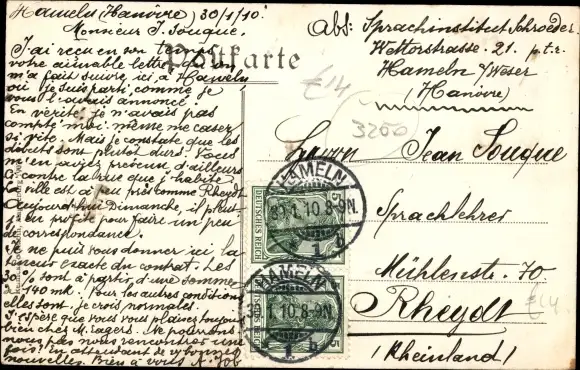 Hameln (Hanôvre) 30/1/10.
Monsieur J. Souque.
J'ai reçu en son temps
votre aimable lettre qu'on
m'a fait suivre ici, à Hameln
où je suis parti, comme je
vous l'avais annoncé.
En vérité je n'avais pas
compté moi-même me caser
si vite. Mais je constate que les
débuts sont plutôt durs.
m'en aviez prévenu, d'ailleurs
Ci-contre la rue que j'habite.
La ville est à peu près comme Rheydt
Aujourd'hui Dimanche, il pleut
je en profite pour faire un peu
de correspondance.
Je ne puis vous donner ici la
teneur exacte du contrat. Les
30% sont à partir d'une somme
140 mk. Pour les autres conditions
elles sont, je crois, normales.
J'espère que vous vous plaisez toujours
bien chez M. Eagers. Ne pourrons
nous pas nous rencontrer une
fois? En attendant de v. bonnes
nouvelles. Bien à vous
Postkarte
Abs: Sprachinstitut Schroeder.
21. ptr.
Hameln a/Weser
(Hanôvre)
£14
3250
Herrn Jean Souque
Sprachlehrer
Mühlenstr. 70
Rheydt
(Rheinland)
£14
HAMELN
30.1.10.8-9N.
1 b
DEUTSCHES REICH
5
HAMELN
30.1.10.8-9N.
1 b
DEUTSCHES REICH
5